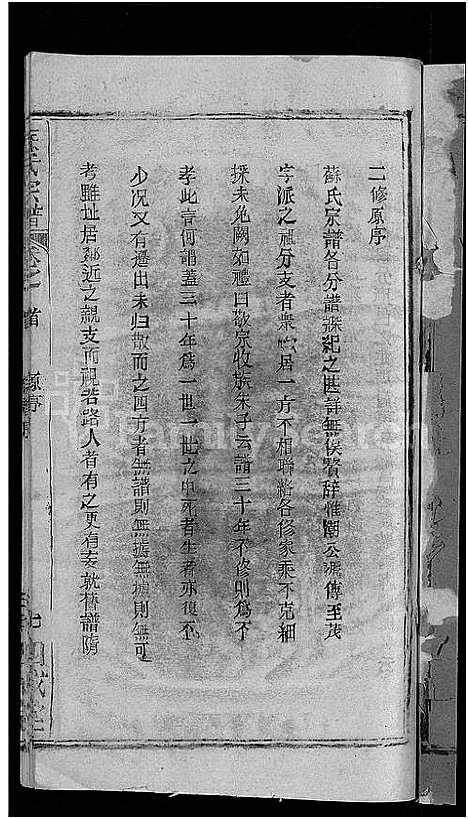 二修原序
蘇氏宗譜各分譜條紀之甚詳無俟贅辭惟潮公遞傳至茂
字派之祖分支者衆散居一方不相聯絡各修家乘不克細
採未免闕如禮曰敬宗收族朱子云譜三十年不修則爲不
孝此言何謂蓋三十年爲一世一世之中死者生者亦復不
少况又有遷出未归散而之四方者無譜則無據無據則無可
考雖址居鄰近之親支而視若路人者有之更有妄就舊譜隋
氏宗譜
卷之一首 原序
FamilySearch